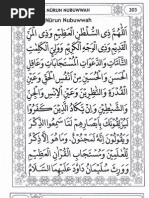 NŪRUN NUBUWWAH 203
Nūrun Nubuwwah
اَللّٰهُمَّ ذِى السُّلْطٰنِ الْعَظِيْمِ وَذِى الْمَنِّ
الْقَدِيْمِ وَذِى الْوَجْهِ الْكَرِيْمِ وَوَلِىِّ الْكَلِمٰتِ
التَّآمَّاتِ وَالدَّعَوَاتِ الْمُسْتَجَابَاتِ وَعَاقِلِ
الْحَسَنِ وَالْحُسَيْنِ مِنْ اَنْفُسِ الْحَقِّ عَيْنِ
الْقُدْرَةِ وَالنَّاظِرِيْنَ وَعَيْنِ الْاِنْسِ وَالْجِنِّ
وَالشَّيَاطِيْنِ وَاِنْ يَّكَادُ الَّذِيْنَ كَفَرُوْا
لَيُزْلِقُوْنَكَ بِاَبْصَارِهِمْ لَمَّا سَمِعُوا الذِّكْرَ
وَيَقُوْلُوْنَ اِنَّهٗ لَمَجْنُوْنٌ وَمَا هُوَ اِلَّا ذِكْرٌ
لِّلْعٰلَمِيْنَ وَمُسْتَجَابُ الْقُرْاٰنِ الْعَظِيْمِ
وَوَرِثَ سُلَيْمٰنُ دَاوٗدَ عَلَيْهِمَا السَّلَامُ